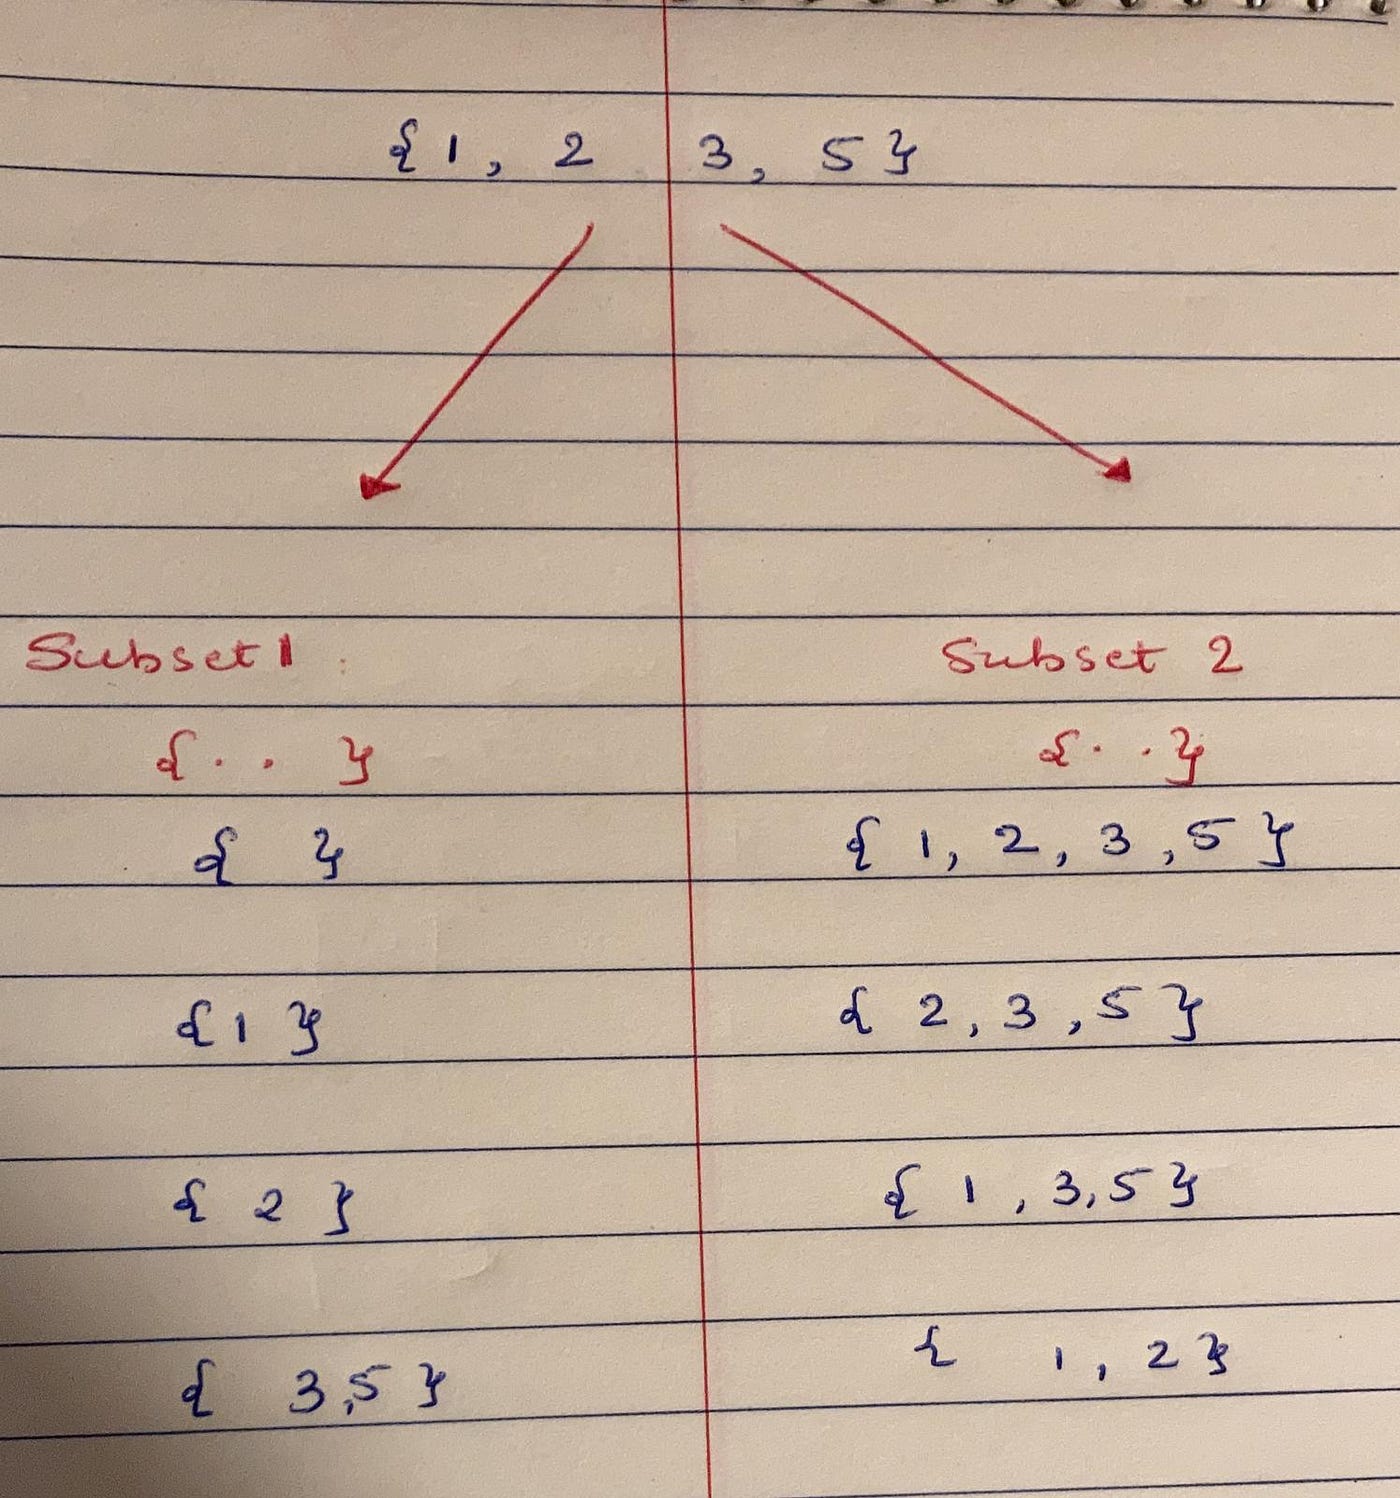 {1, 2 3, 5}
Subset 1 : Subset 2
{ . . } { . . }
{ } { 1, 2, 3, 5 }
{ 1 } { 2, 3, 5 }
{ 2 } { 1, 3, 5 }
{ 3, 5 } { 1, 2 }